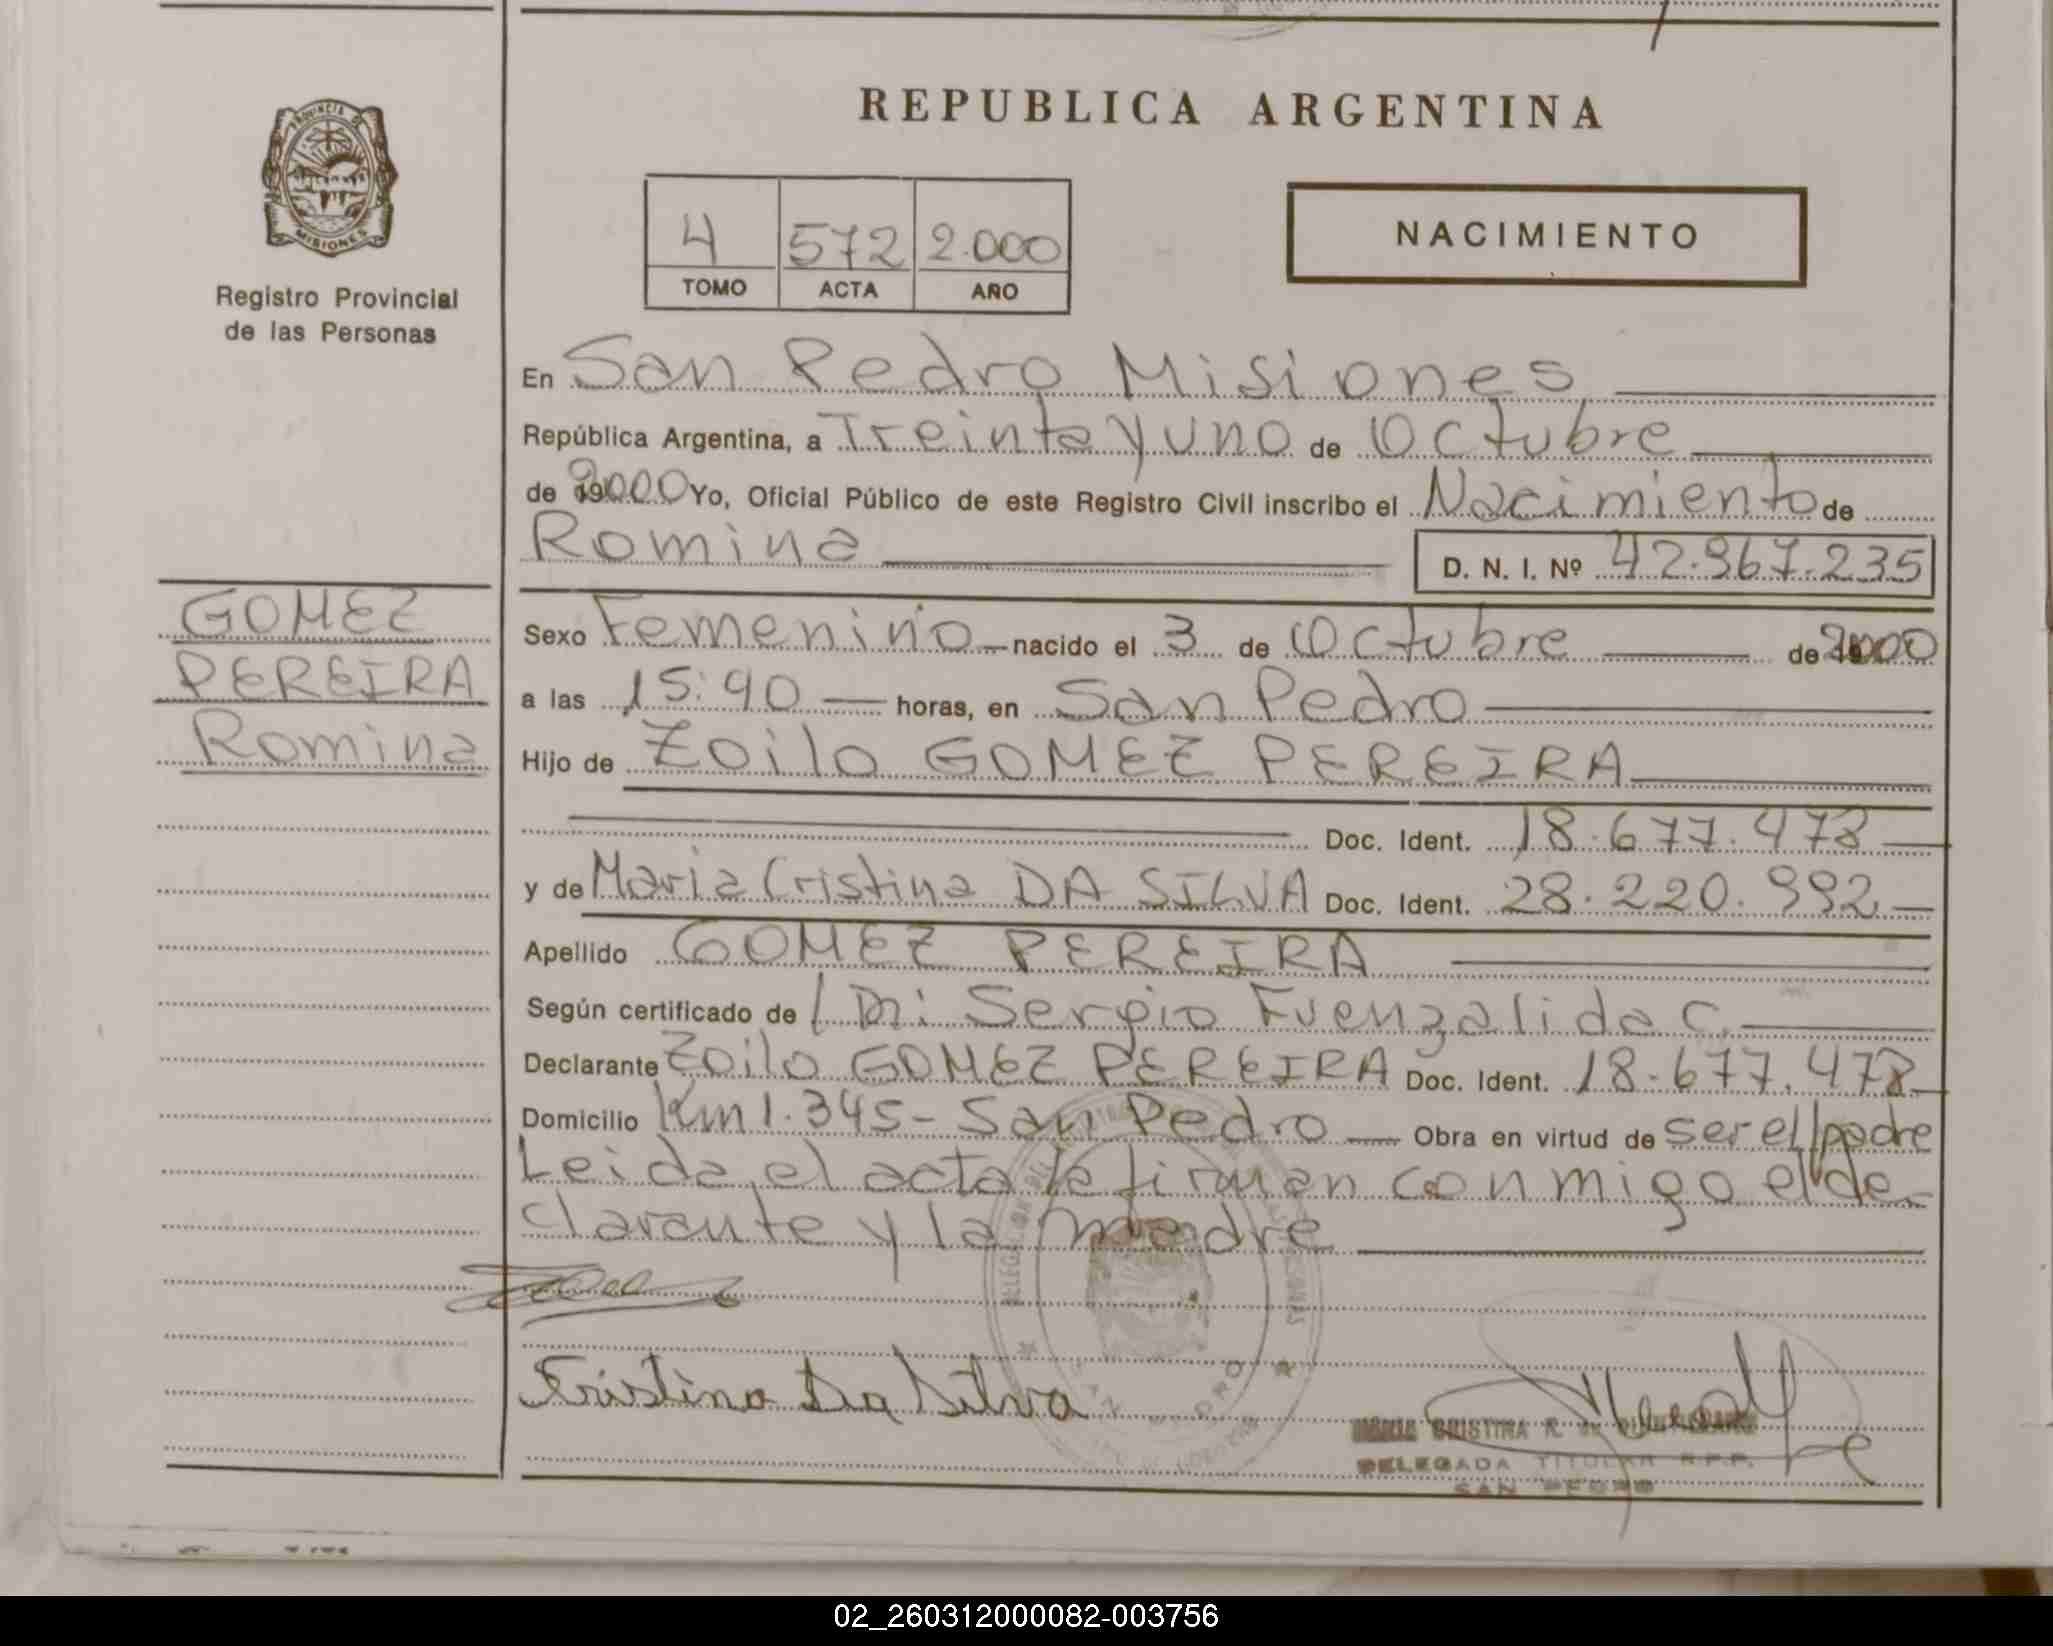 REPUBLICA ARGENTINA
PROVINCIA DE
MISIONES
Registro Provincial
de las Personas
4 572 2.000
TOMO ACTA AÑO
NACIMIENTO
En San Pedro Misiones
República Argentina, a Treinta y uno de Octubre
de 2000 Yo, Oficial Público de este Registro Civil inscribo el Nacimiento de
Romina
D. N. I. Nº 42.967.235
GOMEZ
PEREIRA
Romina
Sexo Femenino nacido el 3 de Octubre de 2000
a las 15:40 horas, en San Pedro
Hijo de Zoilo GOMEZ PEREIRA
Doc. Ident. 18.677.478
y de Maria Cristina DA SILVA Doc. Ident. 28.220.992
Apellido GOMEZ PEREIRA
Según certificado de Dr: Sergio Fuenzalida C.
Declarante Zoilo GOMEZ PEREIRA Doc. Ident. 18.677.478
Domicilio Km 1.345- San Pedro Obra en virtud de ser el padre
Leida el acta la firman conmigo el de-
clarante y la madre
Cristina Da Silva
SAN PEDRO
MARIA CRISTINA R. de
DELEGADA TITULAR R.P.P.
SAN PEDRO
02_260312000082-003756